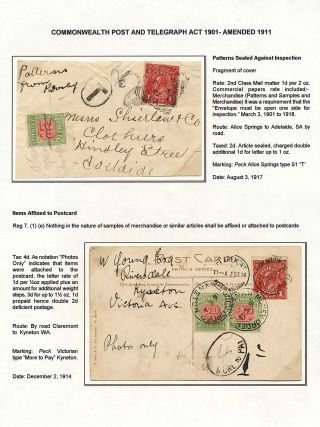 COMMONWEALTH POST AND TELEGRAPH ACT 1901- AMENDED 1911
Patterns Sealed Against Inspection
Fragment of cover
Rate: 2nd Class Mail matter 1d per 2 oz.
Commercial papers rate included:-
Merchandise (Patterns and Samples and
Merchandise) it was a requirement that the
"Envelope must be open one end for
inspection". March 3, 1901 to 1918.
Route: Alice Springs to Adelaide, SA by
road.
Taxed: 2d. Article sealed, charged double
additional 1d for letter up to 1 oz.
Marking: Peck Alice Springs type S1 "T"
Date: August 3, 1917
Patterns
from
T
Messrs Shierlaw & Co
Clothiers
Hindley Street
Adelaide
Items Affixed to Postcard
Reg 7. (1) (e) Nothing in the nature of samples of merchandise or similar articles shall be affixed or attached to postcards
Tax: 4d. As notation "Photos
Only" indicates that items
were attached to the
postcard, the letter rate of
1d per ½oz applied plus an
amount for additional weight
steps, 3d for up to 1½ oz, 1d
prepaid hence double 2d
deficient postage.
Route: By road Claremont
to Kyneton WA.
Marking: Peck Victorian
type "More to Pay" Kyneton.
Date: December 2, 1914
POST CARD
W Young Esq
Riversdale
Kyneton
Victoria Ave.
Photo only